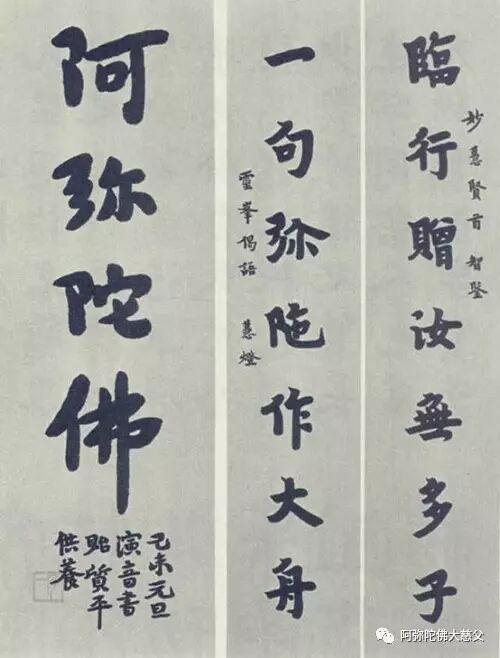 妙慧賢首智鋻
臨行贈汝無多子
一句弥陁作大舟
靈峯偈語 慧燈
阿弥陀佛
己未元旦
演音書
貽質平
供養
阿弥陀佛大慈父